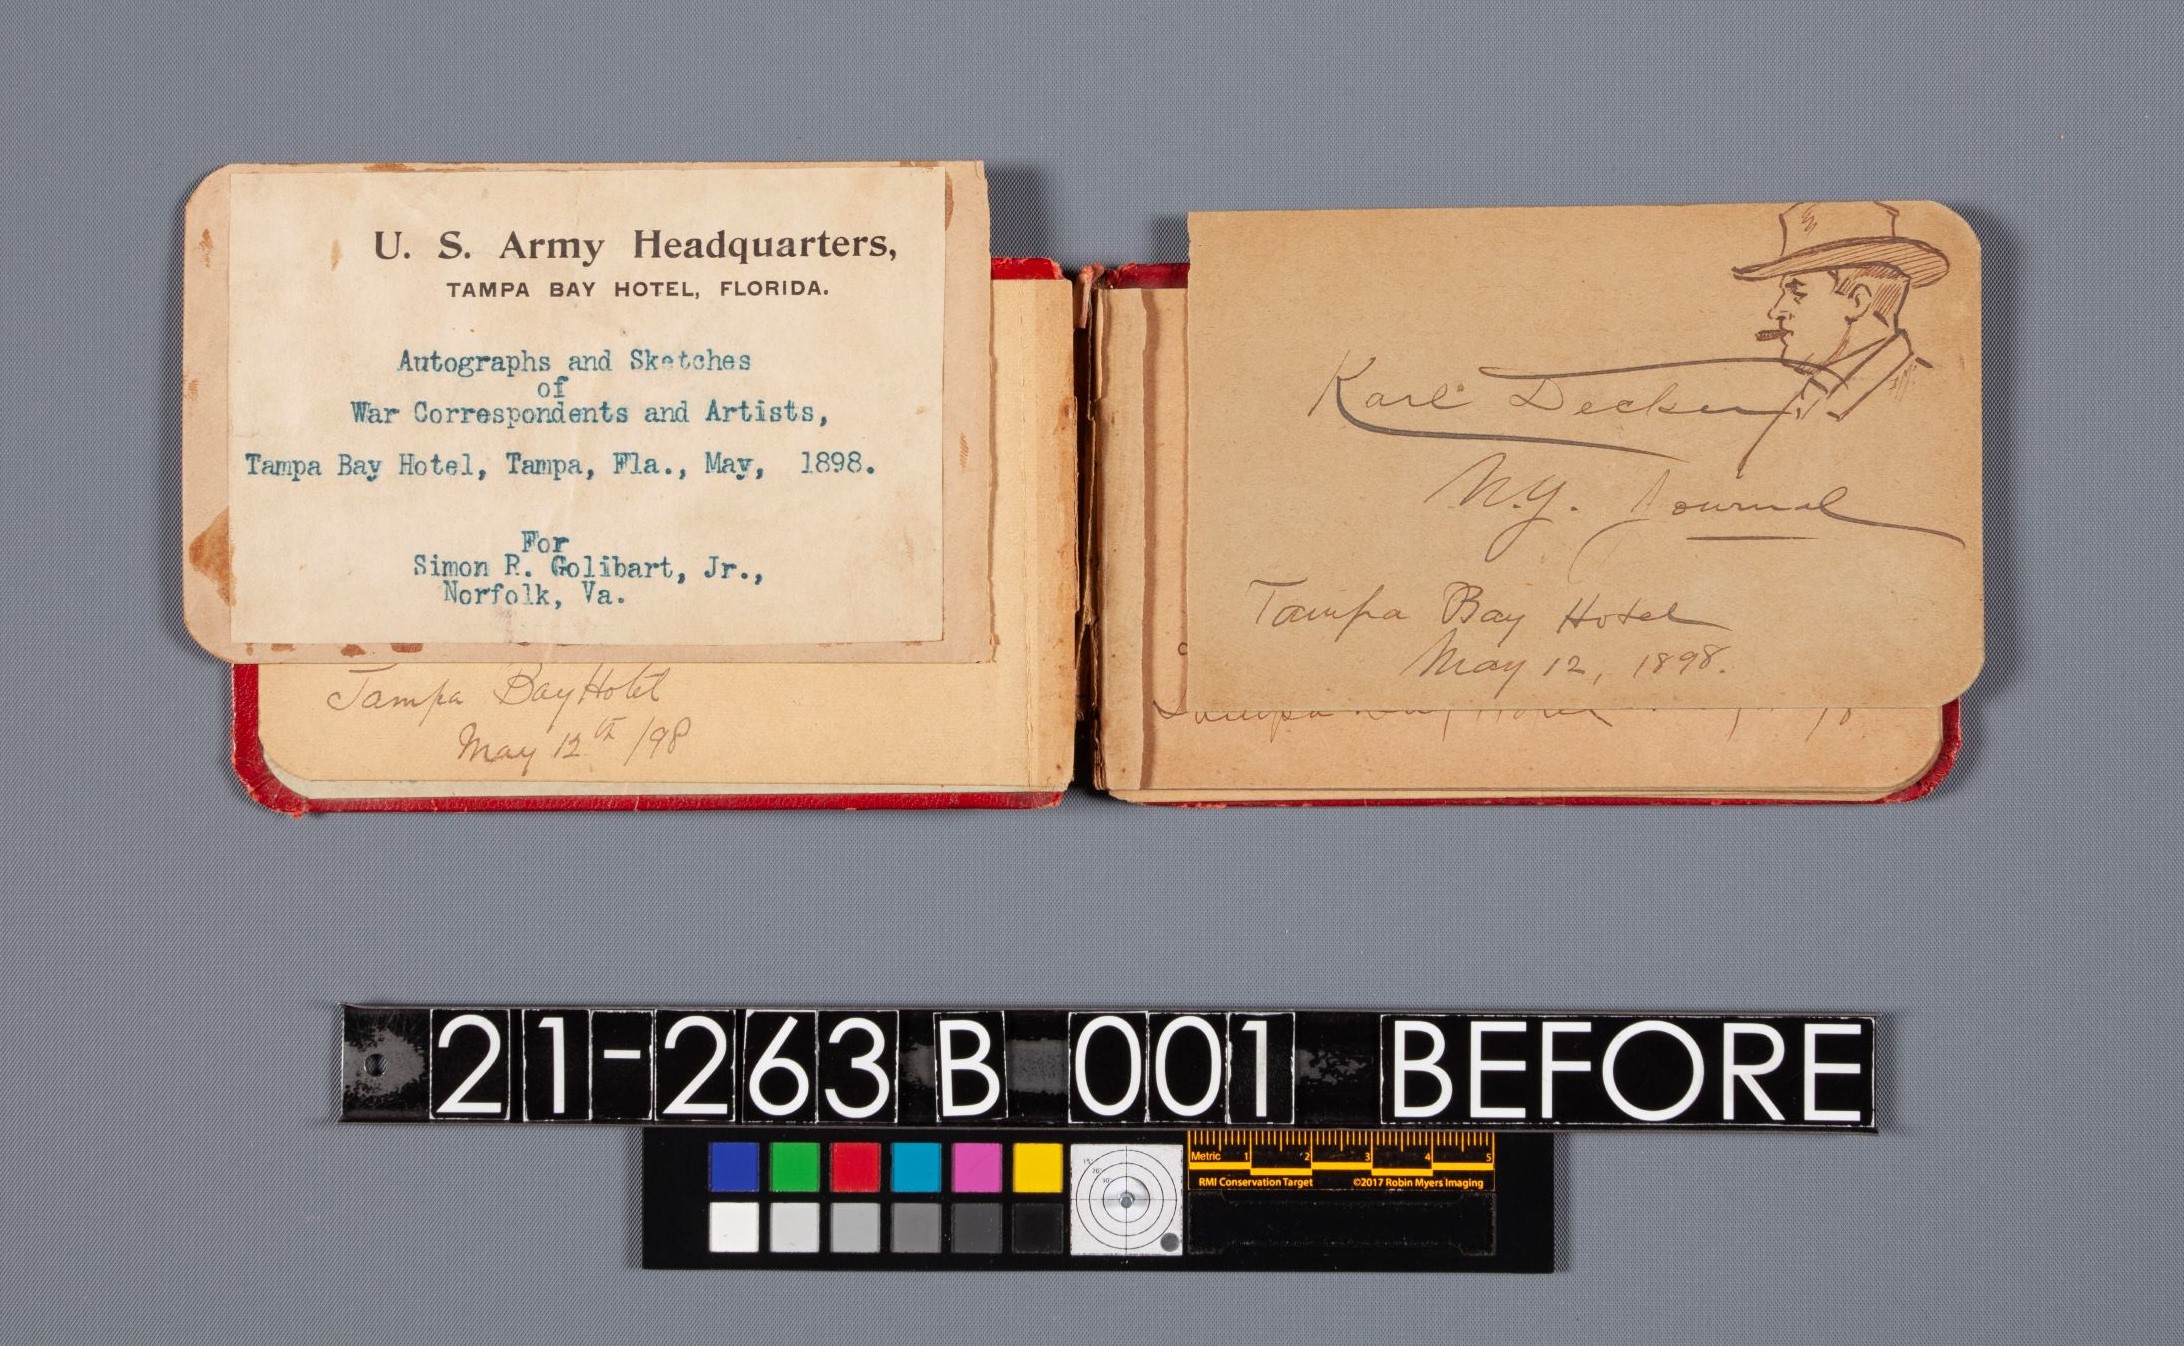 U. S. Army Headquarters,
TAMPA BAY HOTEL, FLORIDA.
Autographs and Sketches
of
War Correspondents and Artists,
Tampa Bay Hotel, Tampa, Fla., May, 1898.
For
Simon R. Golibart, Jr.,
Norfolk, Va.
Tampa Bay Hotel
May 12th /98
Karl Decker
N.Y. Journal
Tampa Bay Hotel
May 12, 1898.
21-263 B 001 BEFORE
Metric 1 2 3 4 5
RMI Conservation Target ©2017 Robin Myers Imaging